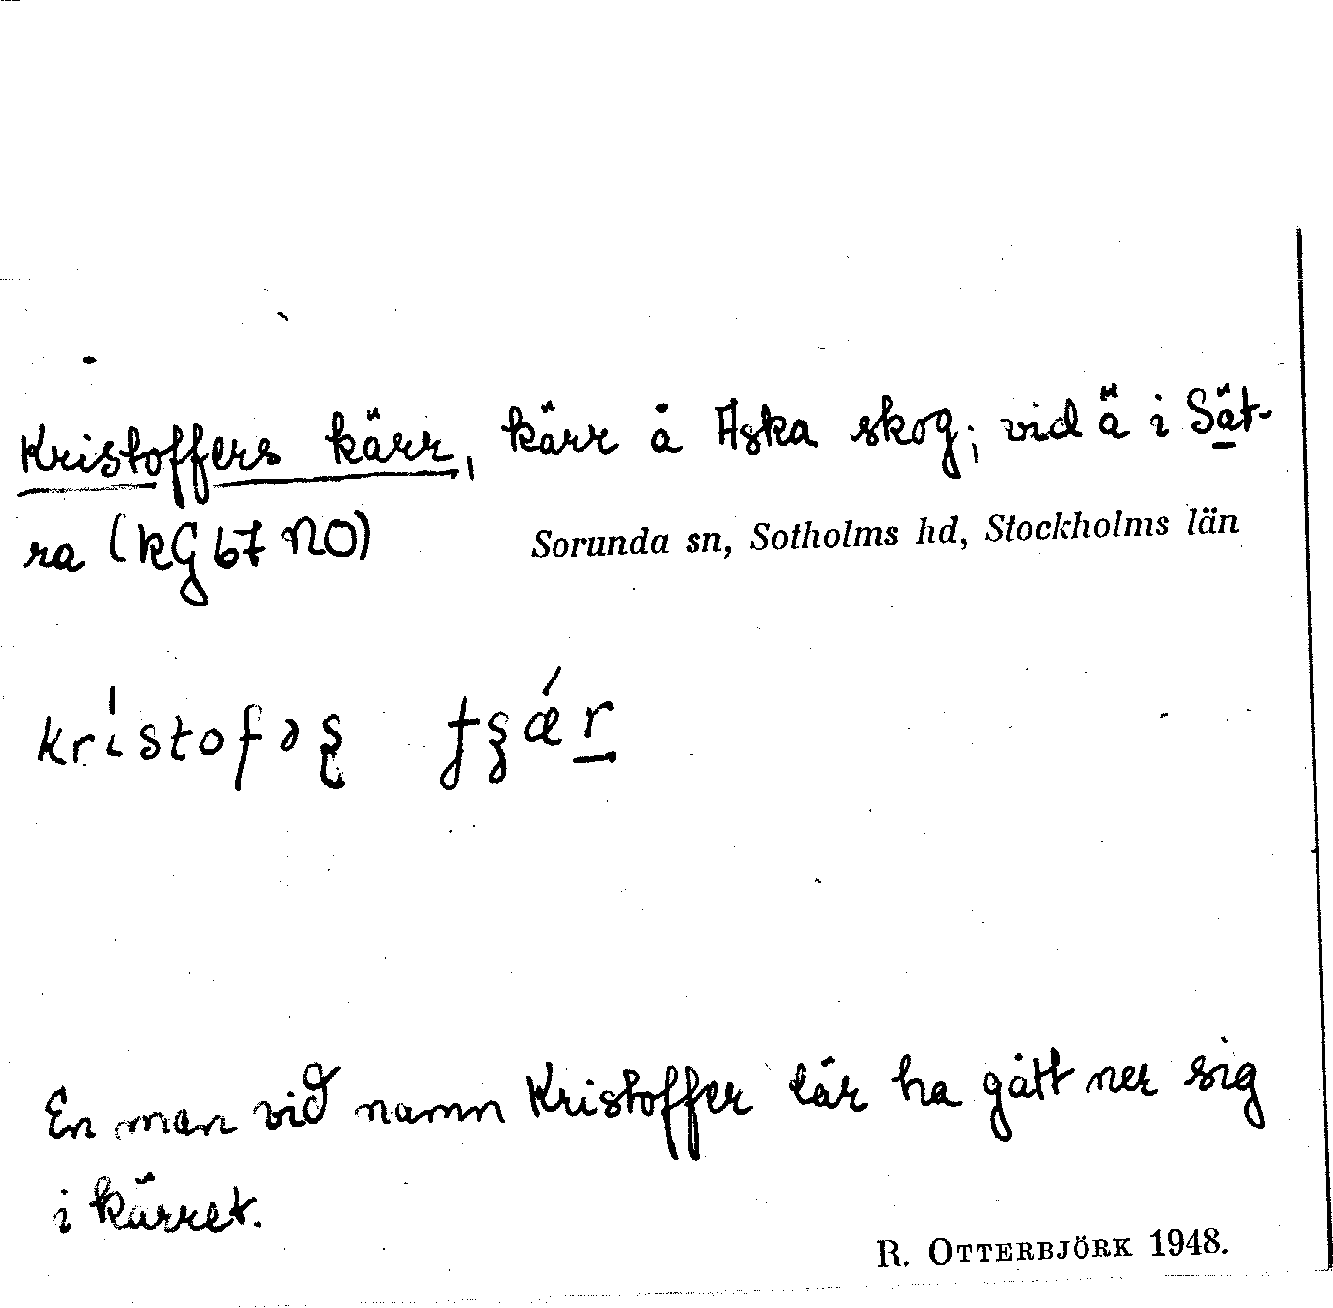 Kristoffers kärr, kärr å Aska skog; vid ä i Sät-
ra (kG 67 NO)
Sorunda sn, Sotholms hd, Stockholms län
En man vid namn Kristoffer lär ha gått ner sig
i kärret.
R. OTTERBJÖRK 1948.